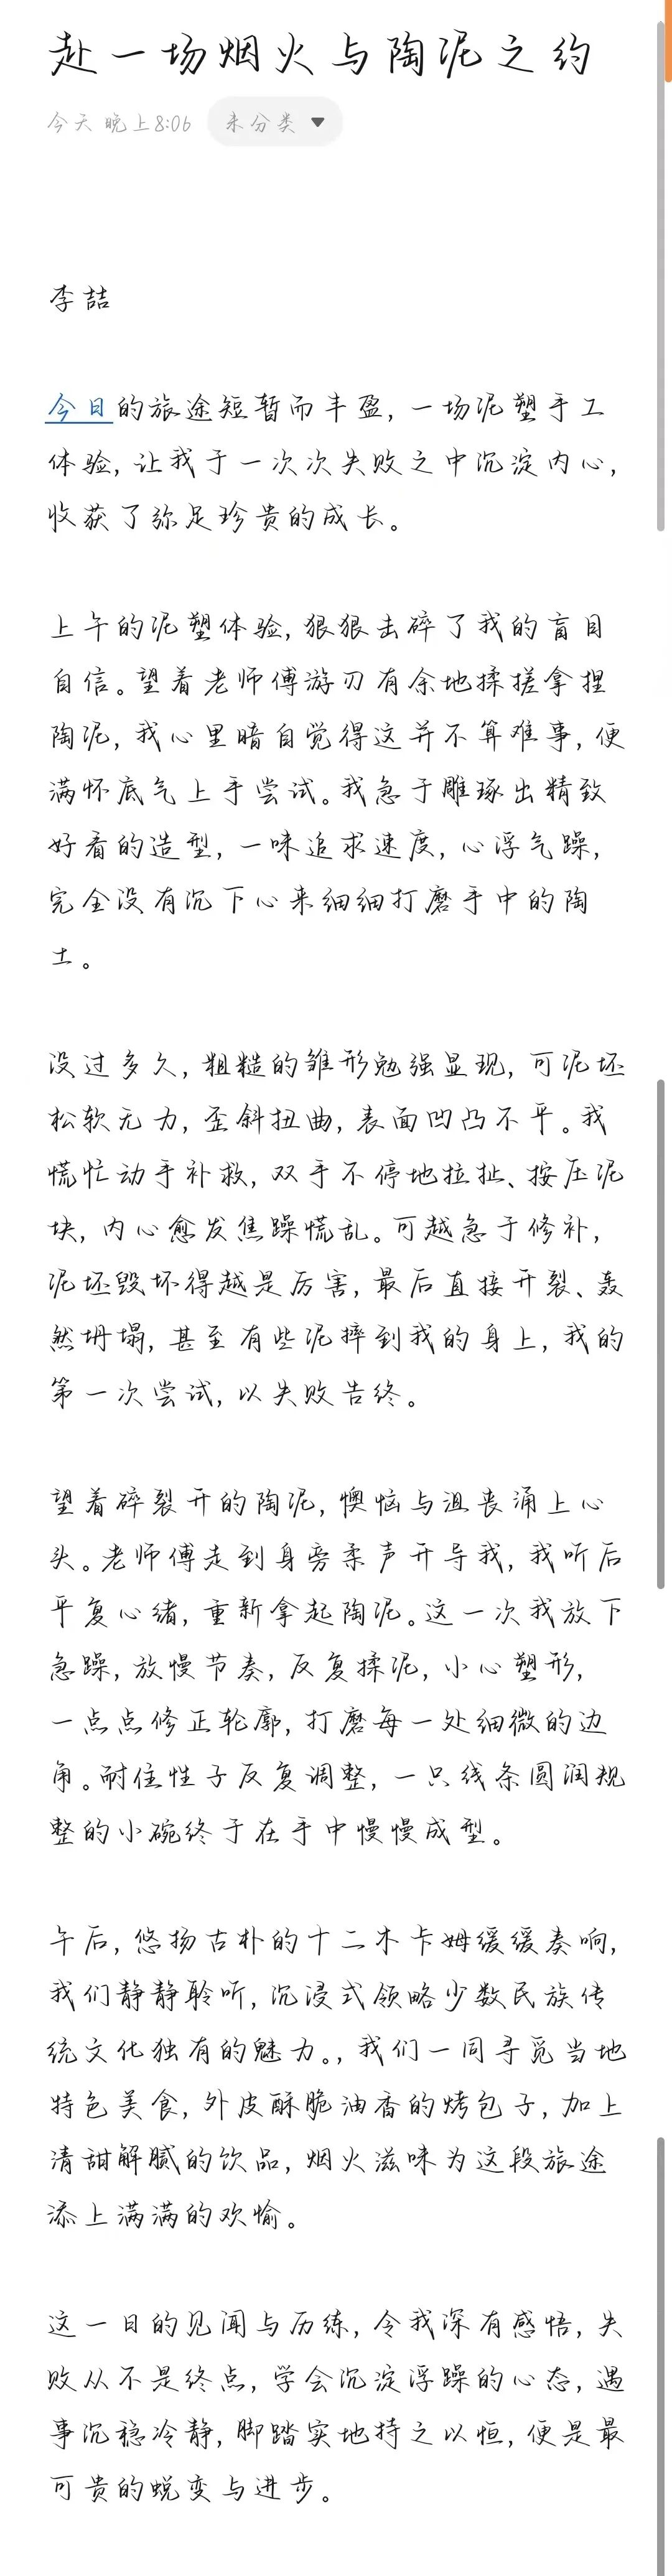 赴一场烟火与陶泥之约
今天 晚上8:06 未分类
李喆
今日的旅途短暂而丰盈，一场泥塑手工
体验，让我于一次次失败之中沉淀内心，
收获了弥足珍贵的成长。
上午的泥塑体验，狠狠击碎了我的盲目
自信。望着老师傅游刃有余地揉搓拿捏
陶泥，我心里暗自觉得这并不算难事，便
满怀底气上手尝试。我急于雕琢出精致
好看的造型，一味追求速度，心浮气躁，
完全没有沉下心来细细打磨手中的陶
土。
没过多久，粗糙的雏形勉强显现，可泥坯
松软无力，歪斜扭曲，表面凹凸不平。我
慌忙动手补救，双手不停地拉扯、按压泥
块，内心愈发焦躁慌乱。可越急于修补，
泥坯毁坏得越是厉害，最后直接开裂、轰
然坍塌，甚至有些泥摔到我的身上，我的
第一次尝试，以失败告终。
望着碎裂开的陶泥，懊恼与沮丧涌上心
头。老师傅走到身旁柔声开导我，我听后
平复心绪，重新拿起陶泥。这一次我放下
急躁，放慢节奏，反复揉泥，小心塑形，
一点点修正轮廓，打磨每一处细微的边
角。耐住性子反复调整，一只线条圆润规
整的小碗终于在手中慢慢成型。
午后，悠扬古朴的十二木卡姆缓缓奏响，
我们静静聆听，沉浸式领略少数民族传
统文化独有的魅力。，我们一同寻觅当地
特色美食，外皮酥脆油香的烤包子，加上
清甜解腻的饮品，烟火滋味为这段旅途
添上满满的欢愉。
这一日的见闻与历练，令我深有感悟，失
败从不是终点，学会沉淀浮躁的心态，遇
事沉稳冷静，脚踏实地持之以恒，便是最
可贵的蜕变与进步。